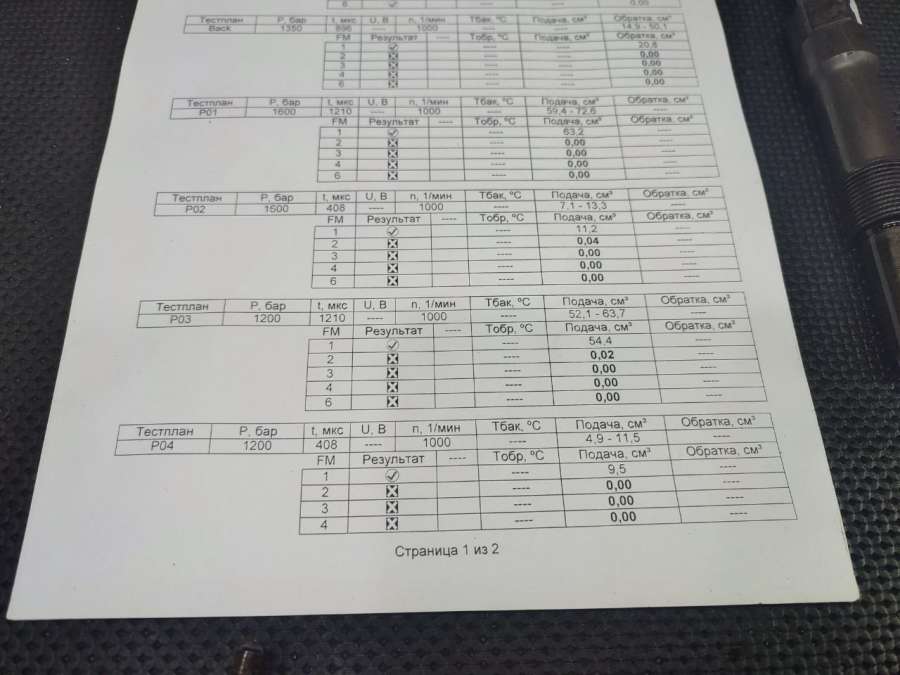 6 0,00
Тестплан P, бар t, мкс U, В n, 1/мин Тбак, ºC Подача, см³ Обратка, см³
Back 1350 896 ---- 1000 ---- ---- 14,9 - 50,1
FM Результат ---- Тобр, ºC Подача, см³ Обратка, см³
1 ---- ---- 20,8
2 ---- ---- 0,00
3 ---- ---- 0,00
4 ---- ---- 0,00
6 ---- ---- 0,00
Тестплан P, бар t, мкс U, В n, 1/мин Тбак, ºC Подача, см³ Обратка, см³
P01 1600 1210 ---- 1000 ---- 59,4 - 72,6 ----
FM Результат ---- Тобр, ºC Подача, см³ Обратка, см³
1 ---- 63,2 ----
2 ---- 0,00 ----
3 ---- 0,00 ----
4 ---- 0,00 ----
6 ---- 0,00 ----
Тестплан P, бар t, мкс U, В n, 1/мин Тбак, ºC Подача, см³ Обратка, см³
P02 1500 408 ---- 1000 ---- 7,1 - 13,3 ----
FM Результат ---- Тобр, ºC Подача, см³ Обратка, см³
1 ---- 11,2 ----
2 ---- 0,04 ----
3 ---- 0,00 ----
4 ---- 0,00 ----
6 ---- 0,00 ----
Тестплан P, бар t, мкс U, В n, 1/мин Тбак, ºC Подача, см³ Обратка, см³
P03 1200 1210 ---- 1000 ---- 52,1 - 63,7 ----
FM Результат ---- Тобр, ºC Подача, см³ Обратка, см³
1 ---- 54,4 ----
2 ---- 0,02 ----
3 ---- 0,00 ----
4 ---- 0,00 ----
6 ---- 0,00 ----
Тестплан P, бар t, мкс U, В n, 1/мин Тбак, ºC Подача, см³ Обратка, см³
P04 1200 408 ---- 1000 ---- 4,9 - 11,5 ----
FM Результат ---- Тобр, ºC Подача, см³ Обратка, см³
1 ---- 9,5 ----
2 ---- 0,00 ----
3 ---- 0,00 ----
4 ---- 0,00 ----
Страница 1 из 2